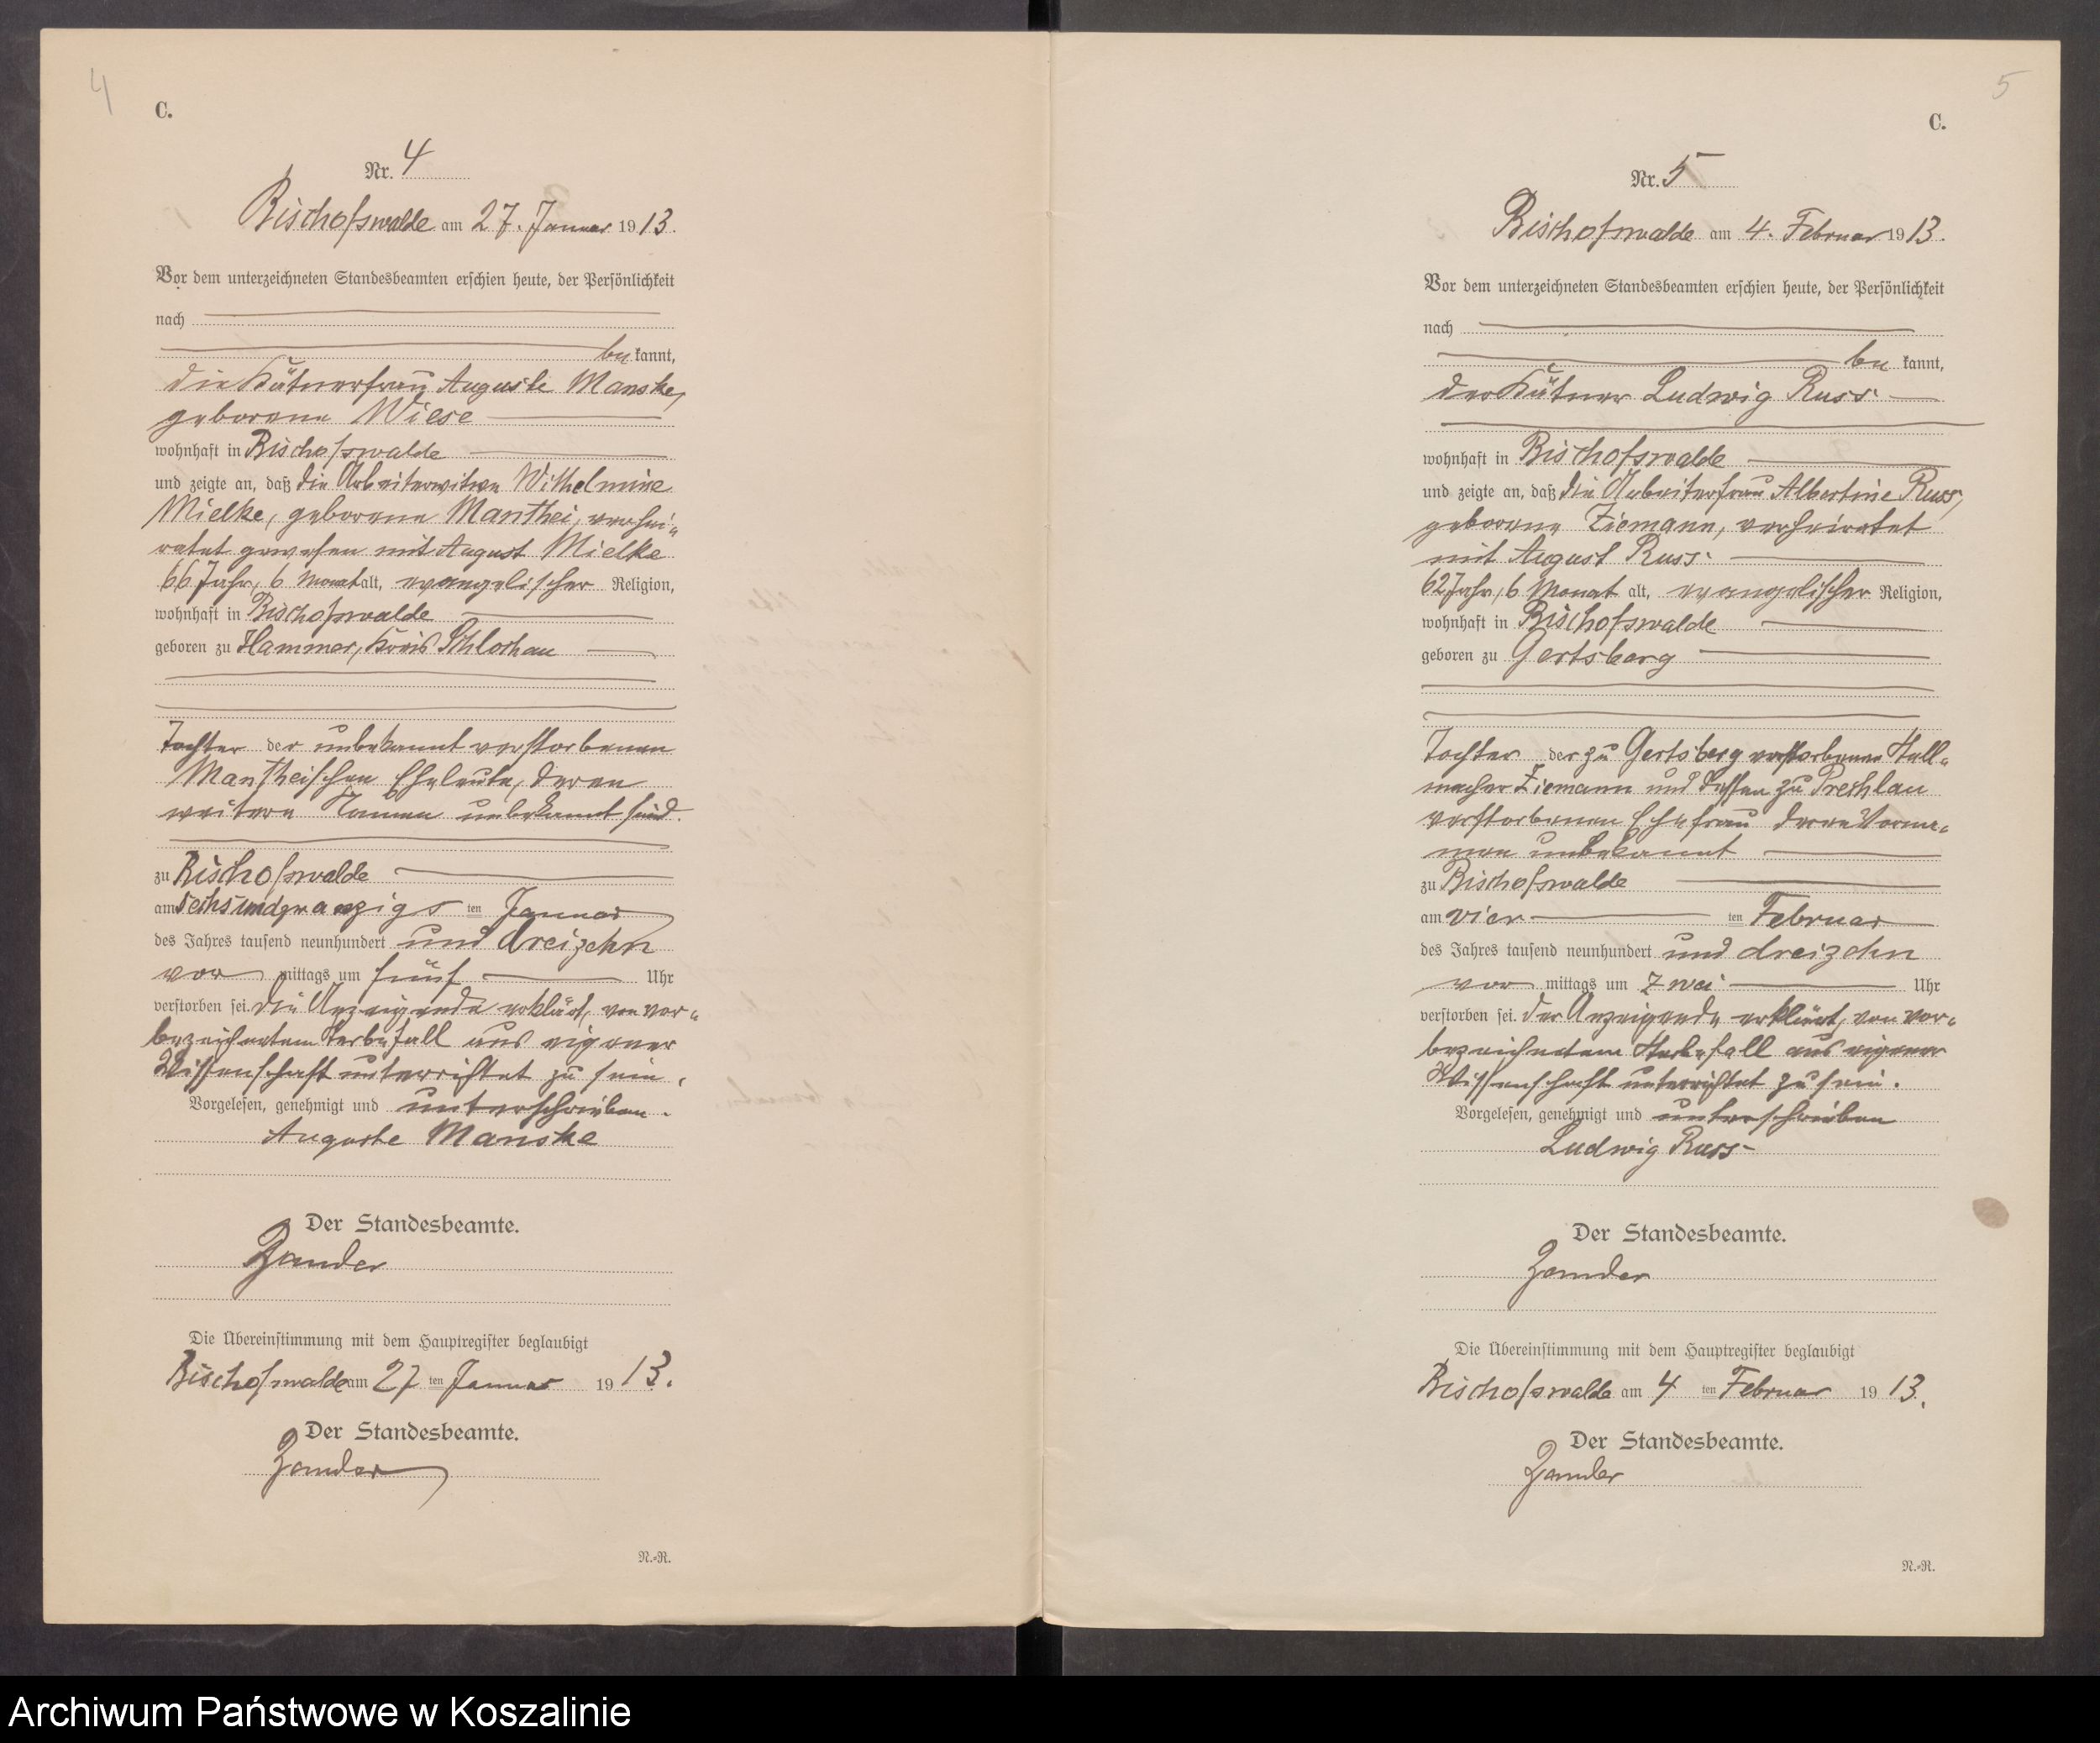 4
C.
Nr. 4
Bischofswalde am 27. Januar 1913.
Vor dem unterzeichneten Standesbeamten erschien heute, der Persönlichkeit
nach
bekannt,
die Kätnerfrau Auguste Manske,
geborene Wiese
wohnhaft in Bischofswalde
und zeigte an, daß die Arbeiterwitwe Wilhelmine
Mielke, geborene Manthei, verhei-
ratet gewesen mit August Mielke
66 Jahr, 6 Monat alt, evangelischer Religion,
wohnhaft in Bischofswalde
geboren zu Hammer, Kreis Schlochau
Tochter der unbekannt verstorbenen
Mantheischen Eheleute, deren
weitere Namen unbekannt sind.
zu Bischofswalde
am sechsundzwanzigsten Januar
des Jahres tausend neunhundert und dreizehn
vor mittags um fünf Uhr
verstorben sei. Die Anzeigende erklärt, von vor-
bezeichnetem Sterbefall aus eigener
Wissenschaft unterrichtet zu sein.
Vorgelesen, genehmigt und unterschrieben.
Auguste Manske
Der Standesbeamte.
Zander
Die Übereinstimmung mit dem Hauptregister beglaubigt
Bischofswalde am 27 ten Januar 1913.
Der Standesbeamte.
Zander
N.-R.
5
C.
Nr. 5
Bischofswalde am 4. Februar 1913.
Vor dem unterzeichneten Standesbeamten erschien heute, der Persönlichkeit
nach
bekannt,
der Kätner Ludwig Russ
wohnhaft in Bischofswalde
und zeigte an, daß die Arbeiterfrau Albertine Russ,
geborene Ziemann, verheiratet
mit August Russ
62 Jahr, 6 Monat alt, evangelischer Religion,
wohnhaft in Bischofswalde
geboren zu Gertsberg
Tochter der zu Gertsberg verstorbenen Stell-
macher Ziemann und dessen zu Prechlau
verstorbenen Ehefrau deren Vorna-
men unbekannt
zu Bischofswalde
am vier ten Februar
des Jahres tausend neunhundert und dreizehn
vor mittags um zwei Uhr
verstorben sei. Der Anzeigende erklärt, von vor-
bezeichnetem Sterbefall aus eigener
Wissenschaft unterrichtet zu sein.
Vorgelesen, genehmigt und unterschrieben
Ludwig Russ
Der Standesbeamte.
Zander
Die Übereinstimmung mit dem Hauptregister beglaubigt
Bischofswalde am 4 ten Februar 1913.
Der Standesbeamte.
Zander
N.-R.
Archiwum Państwowe w Koszalinie